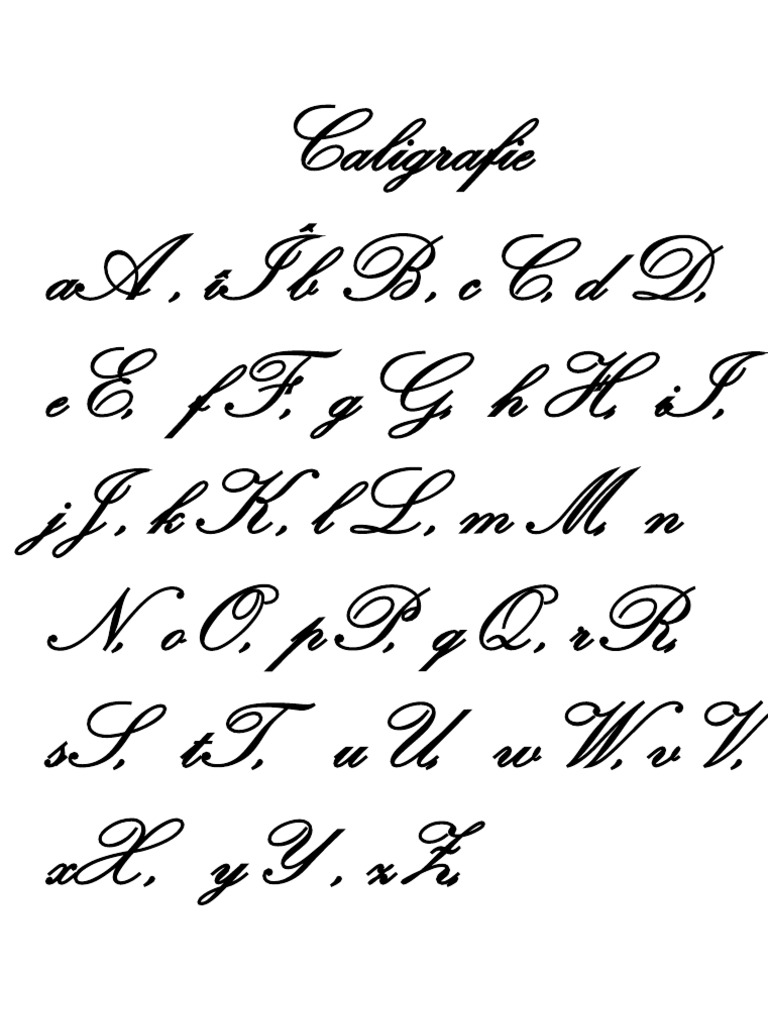 Caligrafie
aA , îÎ b B, c C, d D,
e E, f F, g G, h H, iI,
jJ , k K, l L, m M, n
N, o O, pP, q Q, r R,
sS, tT, u U, w W, v V,
xX, yY , z Z,